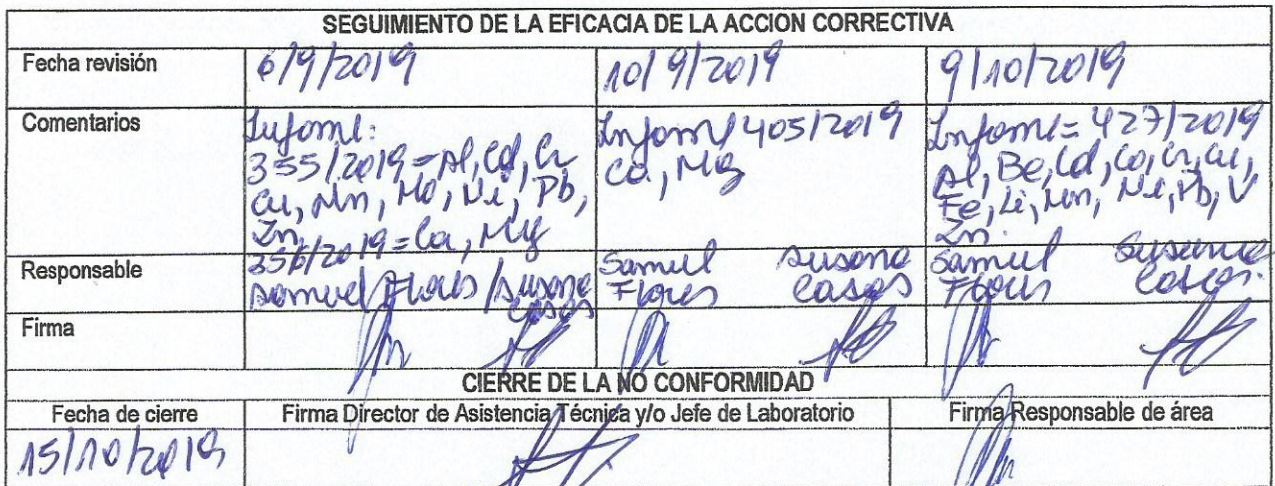 SEGUIMIENTO DE LA EFICACIA DE LA ACCION CORRECTIVA
Fecha revisión 6/9/2019 10/9/2019 9/10/2019
Comentarios
Informe:
355/2019=Al, Cd, Cr
Cu, Mn, Mo, Ni, Pb,
Zn.
356/2019=Ca, Mg
Informe 405/2019
Ca, Mg
Informe=427/2019
Al, Be, Cd, Co, Cr, Cu,
Fe, Li, Mn, Ni, Pb, V
Zn.
Responsable
Samuel Flores / Susana
Casas
Samuel Susana
Flores Casas
Samuel Susana
Flores Casas.
Firma
CIERRE DE LA NO CONFORMIDAD
Fecha de cierre Firma Director de Asistencia Técnica y/o Jefe de Laboratorio Firma Responsable de área
15/10/2019